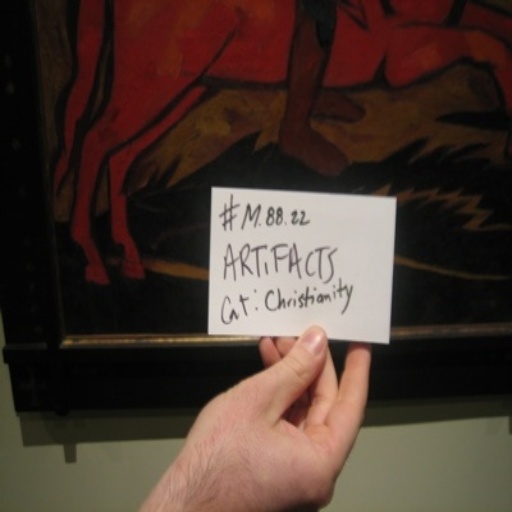 #M.88.22
ARTiFACTS
Cat: Christianity